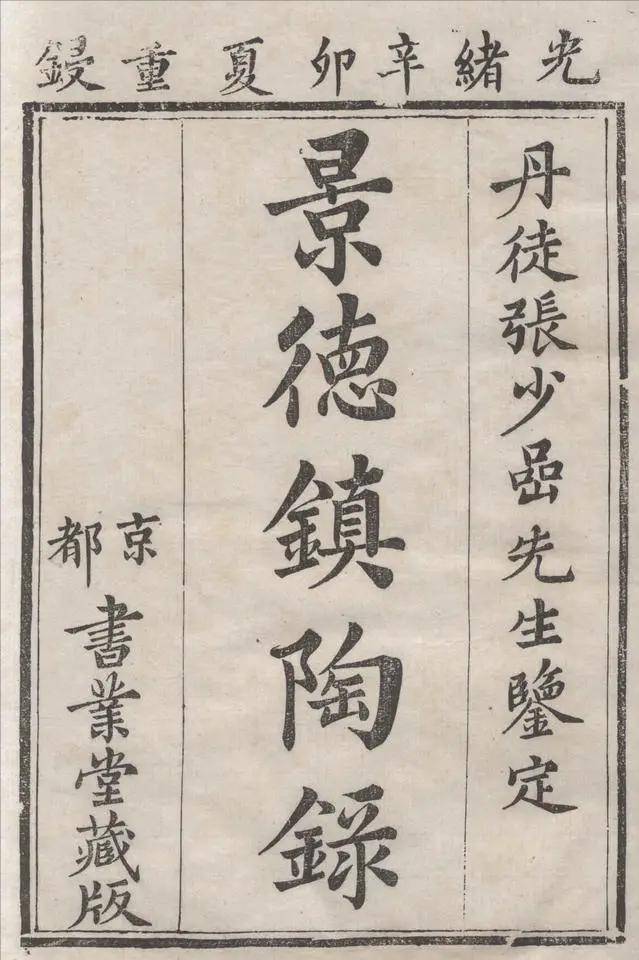 光緒辛卯夏重鋟
丹徒張少喦先生鑒定
景徳鎮陶錄
京都
書業堂藏版